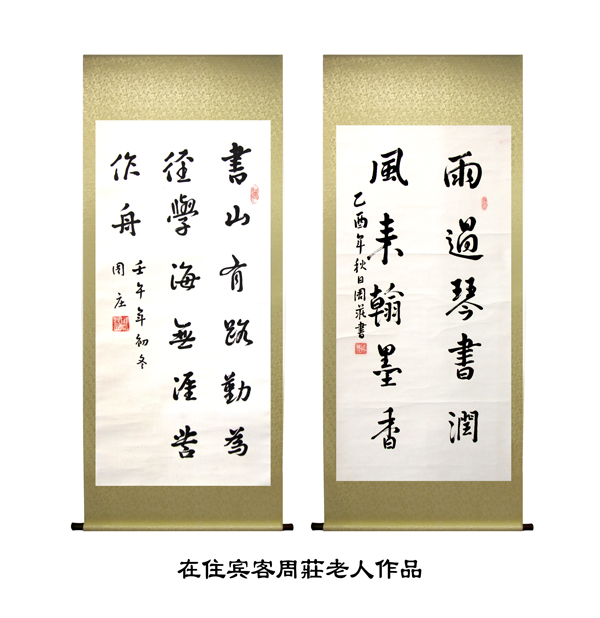 書山有路勤為
径學海無涯苦
作舟
壬午年初冬
周庄
雨過琴書潤
風来翰墨香
乙酉年秋日周莊書
在住宾客周莊老人作品